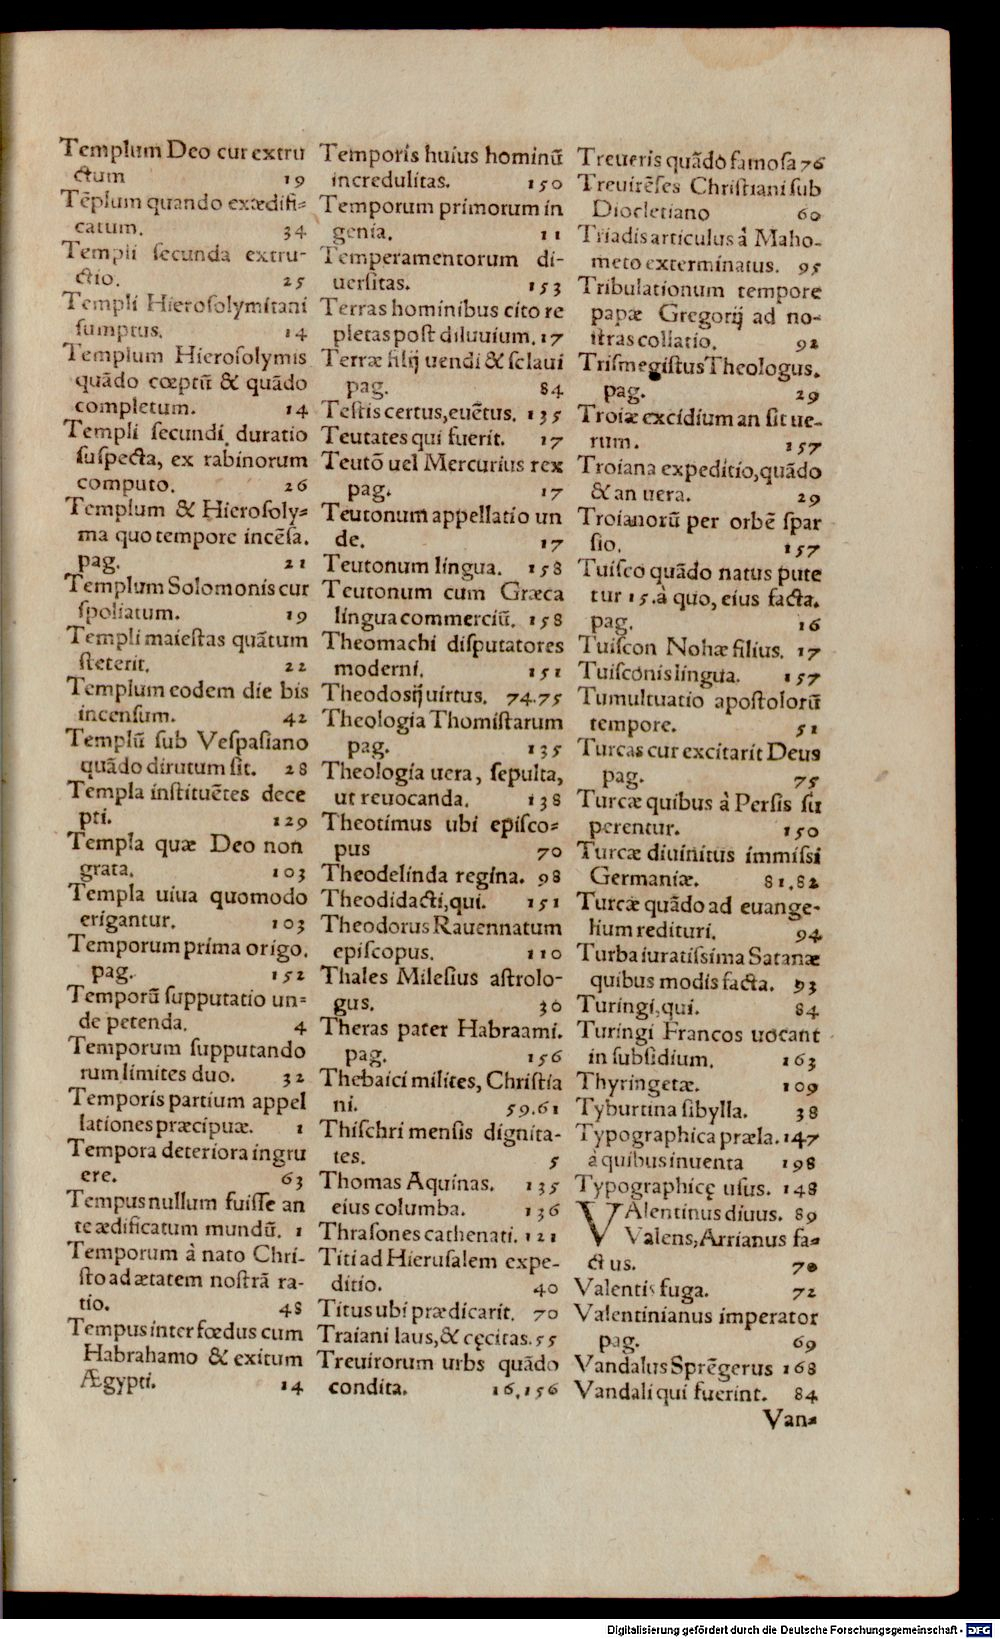 Templum Deo cur extru
ctum 19
Tēplum quando exædifi-
catum. 34
Templi secunda extru-
ctio. 25
Templi Hierosolymitani
sumptus. 14
Templum Hierosolymis
quādo cœptū & quādo
completum. 14
Templi secundi duratio
suspecta, ex rabinorum
computo. 26
Templum & Hierosoly-
ma quo tempore incēsa.
pag. 21
Templum Solomonis cur
spoliatum. 19
Templi maiestas quātum
steterit. 22
Templum eodem die bis
incensum. 42
Templū sub Vespasiano
quādo dirutum sit. 28
Templa instituētes dece
pti. 129
Templa quæ Deo non
grata. 103
Templa uiua quomodo
erigantur. 103
Temporum prima origo.
pag. 152
Temporū supputatio un-
de petenda. 4
Temporum supputando
rum limites duo. 32
Temporis partium appel
lationes præcipuæ. 1
Tempora deteriora ingru
ere. 63
Tempus nullum fuisse an
te ædificatum mundū. 1
Temporum à nato Chri-
sto ad ætatem nostrā ra-
tio. 48
Tempus inter fœdus cum
Habrahamo & exitum
Ægypti. 14
Temporis huius hominū
incredulitas. 150
Temporum primorum in
genia. 11
Temperamentorum di-
uersitas. 153
Terras hominibus cito re
pletas post diluuium. 17
Terræ filij uendi & sclaui
pag. 84
Testis certus, euētus. 135
Teutates qui fuerit. 17
Teutō uel Mercurius rex
pag. 17
Teutonum appellatio un
de. 17
Teutonum lingua. 158
Teutonum cum Græca
lingua commerciū. 158
Theomachi disputatores
moderni. 151
Theodosij uirtus. 74.75
Theologia Thomistarum
pag. 135
Theologia uera, sepulta,
ut reuocanda. 138
Theotimus ubi episco-
pus 70
Theodelinda regina. 98
Theodidacti, qui. 151
Theodorus Rauennatum
episcopus. 110
Thales Milesius astrolo-
gus. 30
Theras pater Habraami.
pag. 156
Thebaici milites, Christia
ni. 59.61
Thischri mensis dignita-
tes. 5
Thomas Aquinas. 135
eius columba. 136
Thrasones cathenati. 121
Titi ad Hierusalem expe-
ditio. 40
Titus ubi prædicarit. 70
Traiani laus, & cęcitas. 55
Treuirorum urbs quādo
condita. 16.156
Treueris quādo famosa 76
Treuirēses Christiani sub
Diocletiano 60
Triadis articulus à Maho-
meto exterminatus. 95
Tribulationum tempore
papæ Gregorij ad no-
stras collatio. 92
Trismegistus Theologus.
pag. 29
Troiæ excidium an sit ue-
rum. 157
Troiana expeditio, quādo
& an uera. 29
Troianorū per orbē spar
sio. 157
Tuisco quādo natus pute
tur 15. à quo, eius facta.
pag. 16
Tuiscon Nohæ filius. 17
Tuisconis lingua. 157
Tumultuatio apostolorū
tempore. 51
Turcas cur excitarit Deus
pag. 75
Turcæ quibus à Persis su
perentur. 150
Turcæ diuinitus immissi
Germaniæ. 81.82
Turcæ quādo ad euange-
lium redituri. 94
Turba iuratissima Satanæ
quibus modis facta. 93
Turingi, qui. 84
Turingi Francos uocant
in subsidium. 163
Thyringetæ. 109
Tyburtina sibylla. 38
Typographica præla. 147
à quibus inuenta 198
Typographicę usus. 148
VAlentinus diuus. 89
Valens, Arrianus fa-
ctus. 70
Valentis fuga. 72
Valentinianus imperator
pag. 69
Vandalus Sprēgerus 168
Vandali qui fuerint. 84
Van-
Digitalisierung gefördert durch die Deutsche Forschungsgemeinschaft - DFG